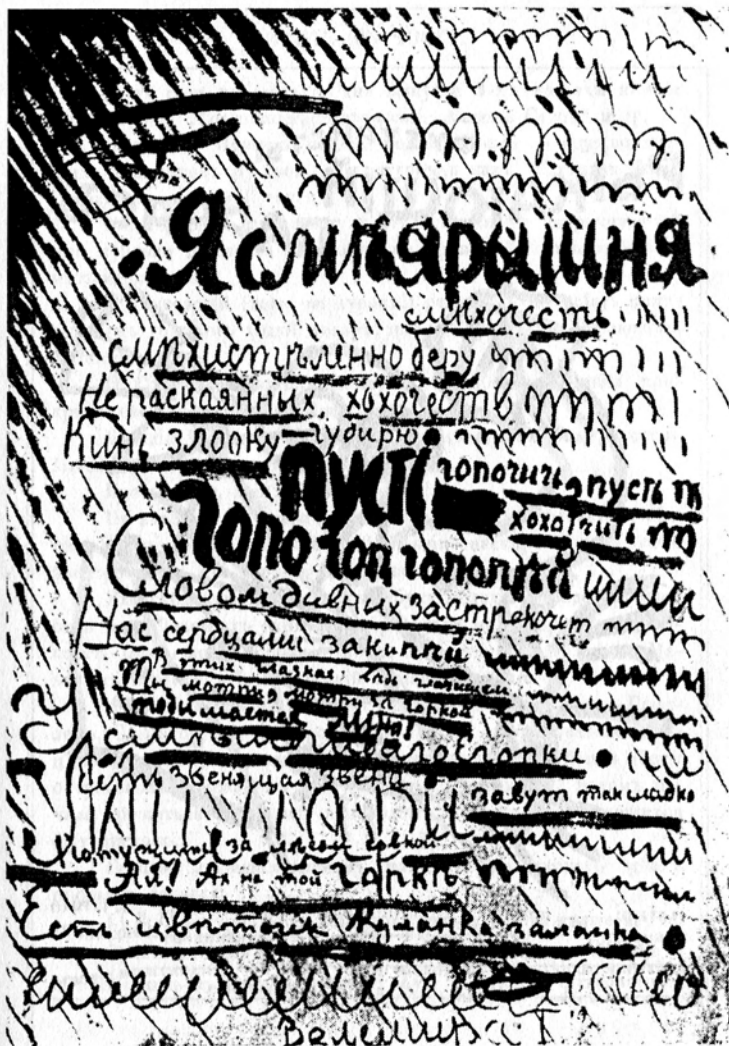 Я смѣярышня
смѣхочеств
смѣхистѣленно беру
Нераскаянных хохочеств
Кинь злооку – губирю
пусть гопочичь, пусть
хохотчить
гопо гоп гопопѣй
Словом дивных застрекочет
Нас сердцами закипѣй
В этих глазках ведь глазищем
Ты мотри, мотри за горкой
подымается луна!
У смѣшливого
Есть звенящая звена
зовут так сладко
Потужить за лѣсом совкой
Ай! Ах на той горкѣ
Есть цвѣточек